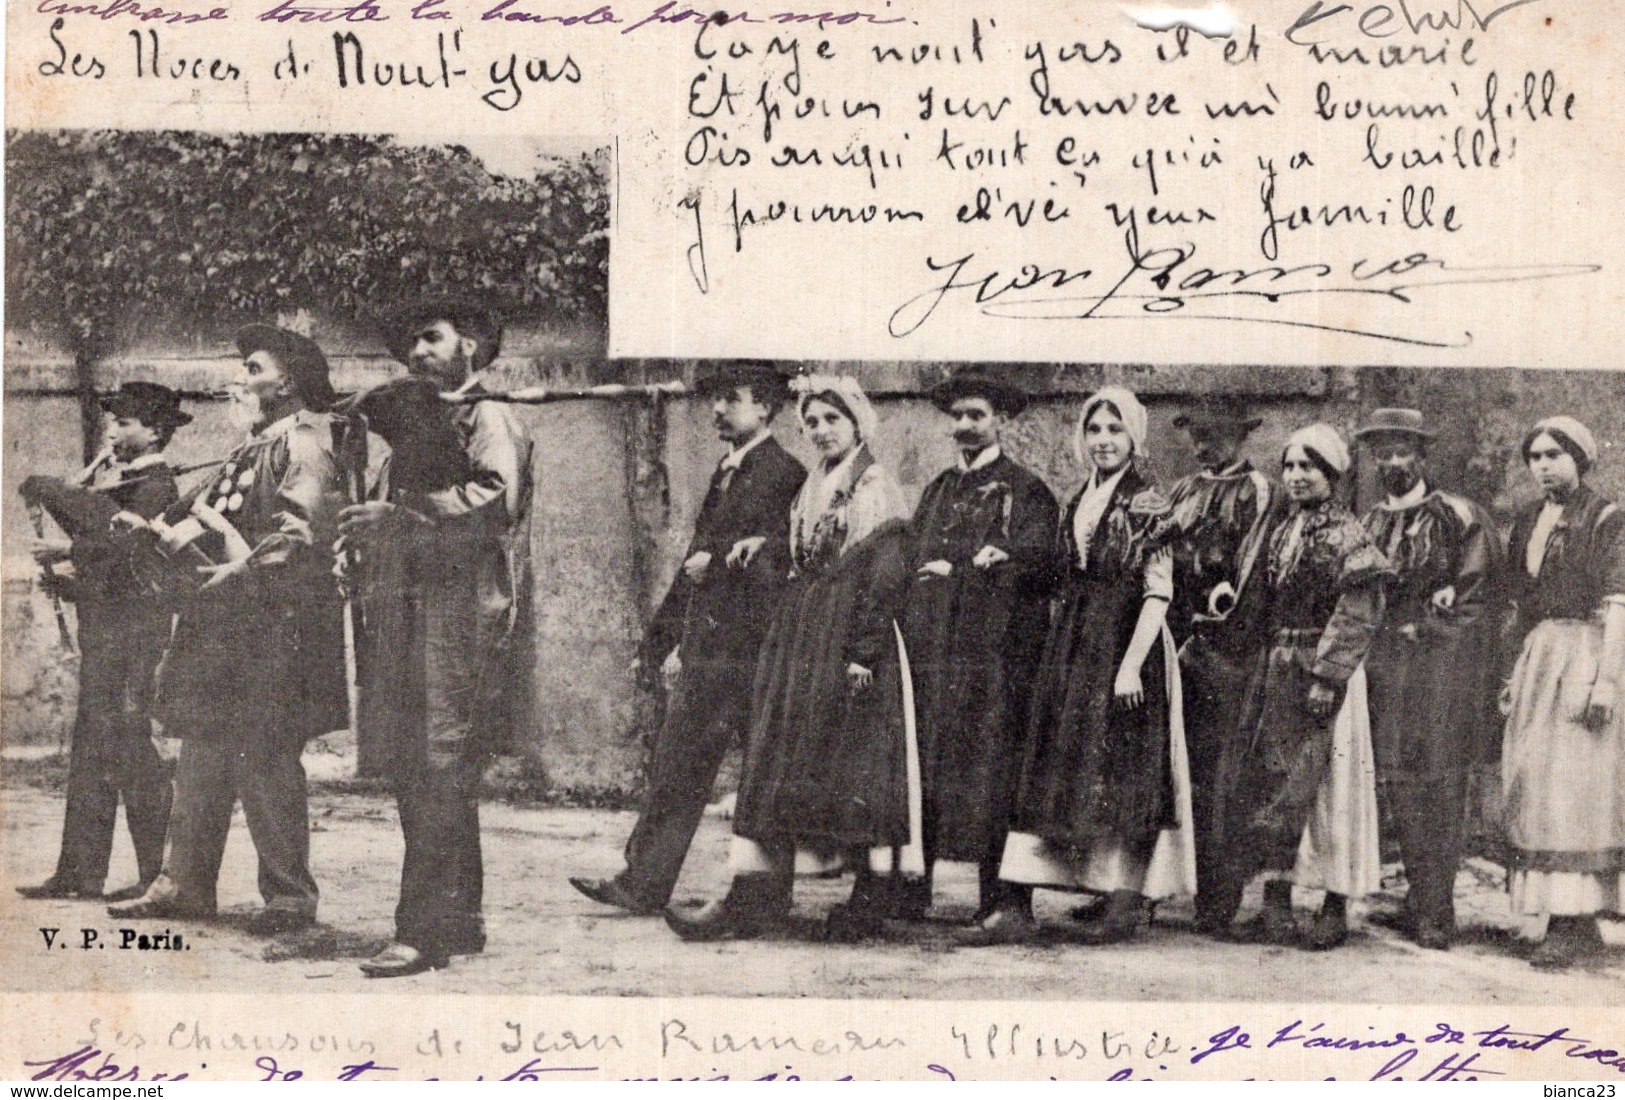 embrasse toute la bande pour moi.
Les Noces de Nout' gas
Ça y é nout' gas il et marié
Et pour sur anvec un' bounn' fille
Pis anqui tout ça qu'a ya baillé
y pourrons él'vé yeux famille
Jean Rameau
V. P. Paris.
Les Chansons de Jean Rameau Illustrée.
je t'aime de tout coeu
Merci de ta carte mais je
lettre
delcampe.net
bianca23